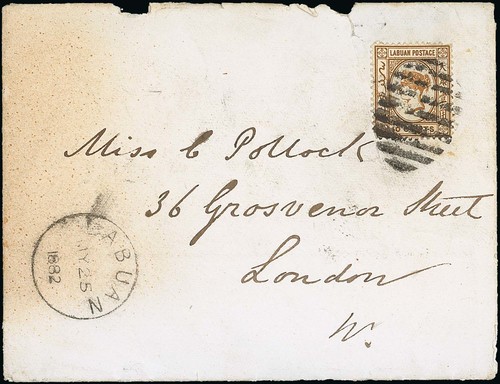 LABUAN POSTAGE
Miss C Pollock
36 Grosvenor Street
London
W.
LABUAN
MY 25
1882